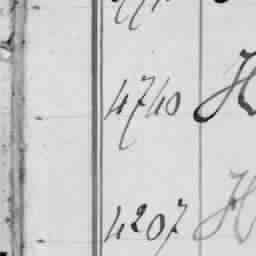 4740 H
4207 H